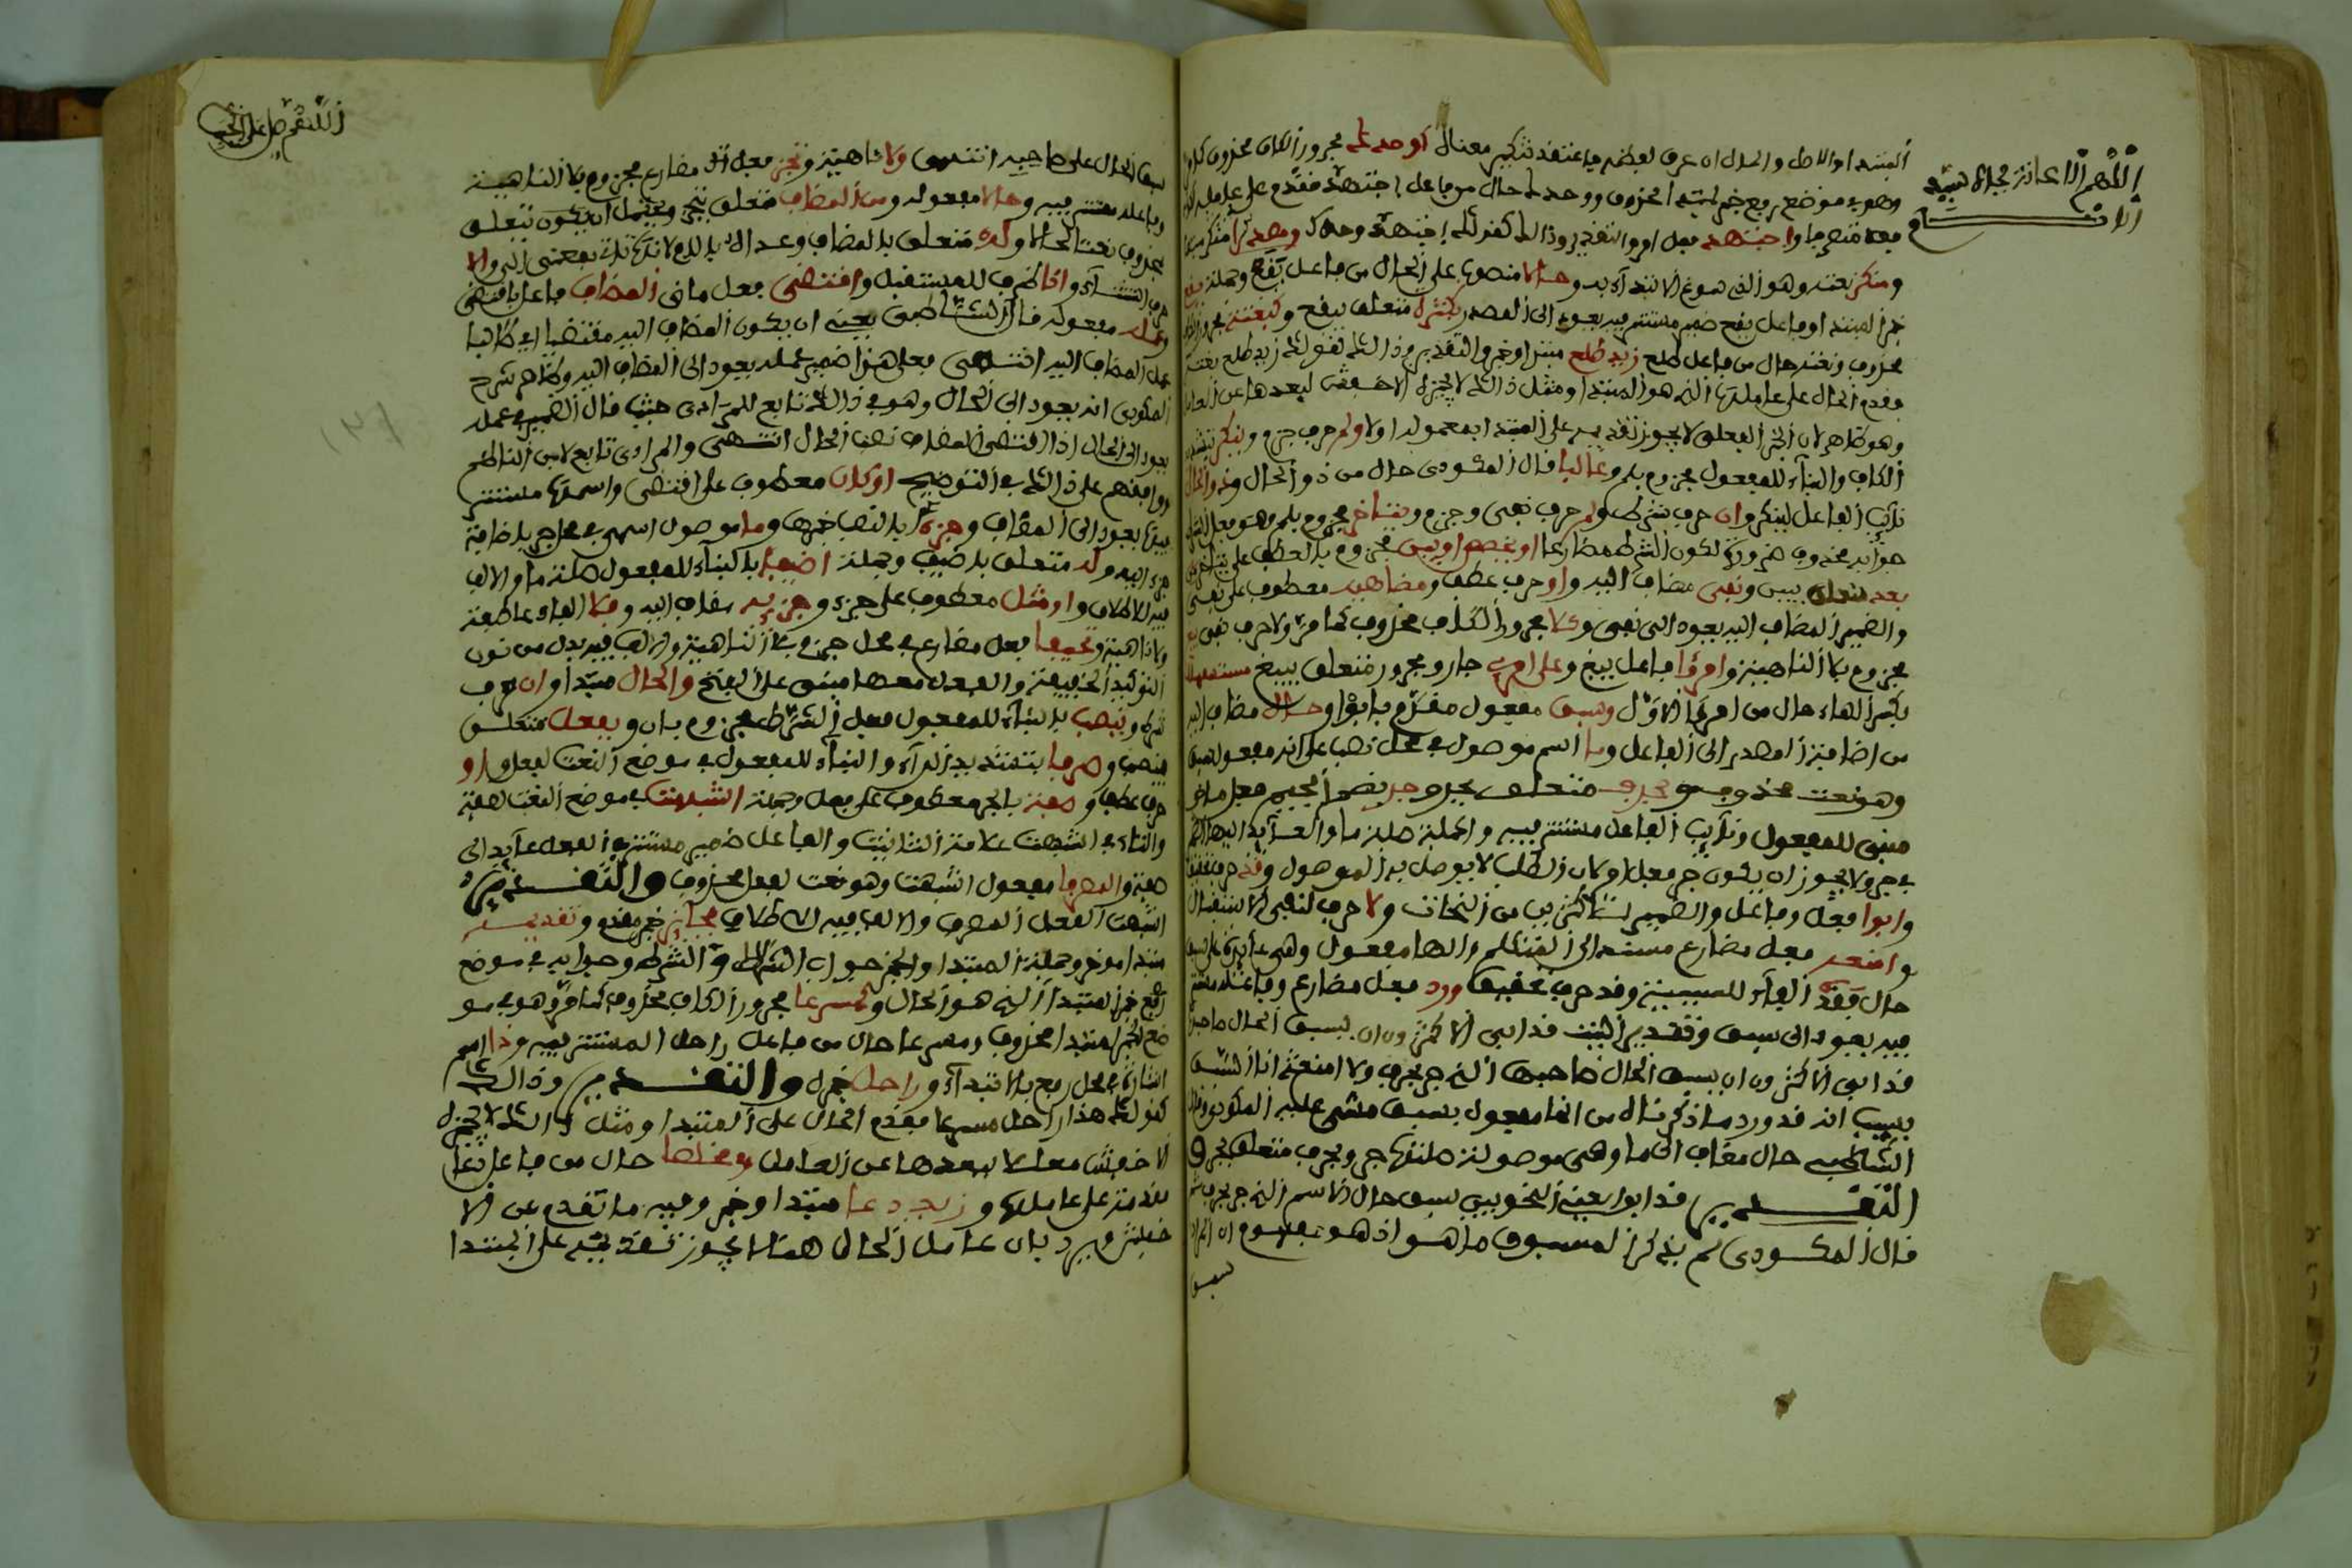 اللهم الاعانة بجاه سيد
الانام
المبتدا والاصل والحال ان عرف لفظا فاعتقد تنكيره معنى كوحدك مجرور الكاف محذوف
وهو في موضع رفع خبر لمبتدا محذوف ووحدك حال من فاعل اجتهد مقدم على عامله
معه متصرفا واجتهد فعل امر والتقدير وذالك كقولك اجتهد وحدك ومصدر منكر
ومنكر نعته وهو الذي سوغ الابتداء به وحالا منصوب على الحال من فاعل يقع وجملة يقع
خبر المبتدا وفاعل يقع ضمير مستتر فيه يعود الى المصدر بكثرة متعلق بيقع وكبغتة
محذوف وبغتة حال من فاعل طلع زيد طلع مبتدا وخبر والتقدير وذالك كقولك زيد طلع بغتة
فقدم الحال على عاملها الذي هو المبتدا ومثل ذالك لا يجيزه الاخفش لبعدها عن العامل
وهو ظاهر لان الخبر الفعلي لا يجوز تقديمه على المبتدا فمعموله اولا ولم حرف جزم وينكر
الكاف والبناء للمفعول مجزوم بلم وغالبا قال المكودي حال من ذو الحال وذو الحال
نائب الفاعل لينكر وان حرف شرط ولم حرف نفي وجزم ويتاخر مجزوم بلم وهو فعل الشرط
جوابه محذوف ضرورة لكون الشرط مضارعا او يخصص او يبن مجزوم بالعطف على يتاخر
بعد متعلق بيبن ونفي مضاف اليه واو حرف عطف ومضاهيه معطوف على نفي
والضمير المضاف اليه يعود الى نفي وكلا مجرور الكاف محذوف كما مر ولا حرف نفي
مجزوم بلا الناهية وامرؤ فاعل يبغ وعلى امرئ جار ومجرور متعلق بيبغ مستسهلا
بكسر الهاء حال من امرؤ الاول وسبق مفعول مقدم بابوا وحال مضاف اليه
من اضافة المصدر الى الفاعل وما اسم موصول في محل نصب على انه مفعول سبق
وهو نعت محذوف بحرف متعلق بجر وجر بضم الجيم فعل ماض
مبني للمفعول ونائب الفاعل مستتر فيه والجملة صلة ما والعائد اليها الضمير
في جر ولا يجوز ان يكون جر فعل امر لان الطلب لا يوصل به الموصول وقد حرف تحقيق
وابوا فعل وفاعل والضمير للاكثرين من النحات ولا حرف لنفي الاستقبال
وامنعه فعل مضارع مسند الى المتكلم والها مفعول وهي عائدة على سبق
حال فقد الفاء للسببية وقد حرف تحقيق ورد فعل مضارع وفاعله مستتر
فيه يعود الى سبق وتقدير البيت قد ابى الاكثرون ان يسبق الحال صاحبها
قد ابى الاكثرون ان يسبق الحال صاحبها الذي جر بحرف ولا امنعه انا السبق
بسبب انه قد ورد ما ذكر قال من انها مفعول بسبق مشى عليه المكودي وقال
الشاطبي حال مضاف الى ما وهي موصولة صلتها جر وبحرف متعلق بجر و
التقدير قد ابوا يعني النحويين سبق حال الاسم الذي جر بحرف
قال المكودي لم يذكر المسبوق ما هو اذ هو مفهوم ان الحال
سبق
اللهم صل على النبي
سبق الحال على صاحبه انتهى ولا ناهية وتجز فعل مضارع مجزوم بلا الناهية
وفاعله مستتر فيه وحالا مفعوله ومن المضاف متعلق بتجز ويحتمل ان يكون متعلق
بمحذوف نعتا لحالا وله متعلق بالمضاف وعداه باللام لانها تاتي بمعنى الى والا
حرف استثناء واذا ظرف للمستقبل واقتضى فعل ماض المضاف فاعل باقتضى
وعمله مفعوله قال الشاطبي يعني ان يكون المضاف اليه مقتضيا اي طالبا
عمل المضاف اليه انتهى فعلى هذا ضمير عمله يعود الى المضاف اليه وظاهر شرح
المكودي انه يعود الى الحال وهو في ذالك تابع للمرادي حيث قال الضمير في عمله
يعود الى الحال اذا اقتضى المضاف نصب الحال انتهى والمرادي تابع لابن الناظم
ووافقهم على ذالك في التوضيح او كان معطوف على اقتضى واسمها مستتر
فيها يعود الى المضاف وجزء بالنصب خبرها وما موصول اسمي في محل جر باضافة
جزء اليه وله متعلق باضيف وجملة اضيفا بالبناء للمفعول صلة ما والالف
فيه للاطلاق واو مثل معطوف على جزء وجزئه مضاف اليه وفلا الفاء عاطفة
ولا ناهية وتحيفا فعل مضارع في محل جزم بلا الناهية والالف فيه بدل من نون
التوكيد الخفيفة والفعل معها مبني على الفتح والحال مبتدا وان حرف
شرط وينصب بالبناء للمفعول فعل الشرط مجزوم بان وبفعل متعلق
بينصب وصرفا بتشديد الراء والبناء للمفعول في موضع النعت لفعل واو
حرف عطف وصفة بالجر معطوف على فعل وجملة اشبهت في موضع النعت لصفة
والتاء في اشبهت علامة التانيث والفاعل ضمير مستتر في الفعل عايد الى
صفة والمصرفا مفعول اشبهت وهو نعت لفعل محذوف والتقدير
اشبهت الفعل المصرف والالف فيه للاطلاق فجائز خبر مقدم وتقديمه
مبتدا موخر وجملة المبتدا والخبر جواب الشرط والشرط وجوابه في موضع
رفع خبر المبتدا الذي هو الحال وكمسرعا مجرور الكاف محذوف كما مر وهو في مو
ضع الخبر لمبتدا محذوف ومسرعا حال من فاعل راحل المستتر فيه وذا اسم
اشارة في محل رفع بالابتداء وراحل خبره والتقدير وذالك
كقولك هذا راحل مسرعا فقدم الحال على المبتدا ومثل ذالك لا يجيزه
الاخفش معللا ببعدها عن العامل ومخلصا حال من فاعل دعا
مقدمة على عاملها وزيد دعا مبتدا وخبر وفيه ما تقدم عن الا
خفش ويرد بان عامل الحال هنا لا يجوز تقديمه على المبتدا